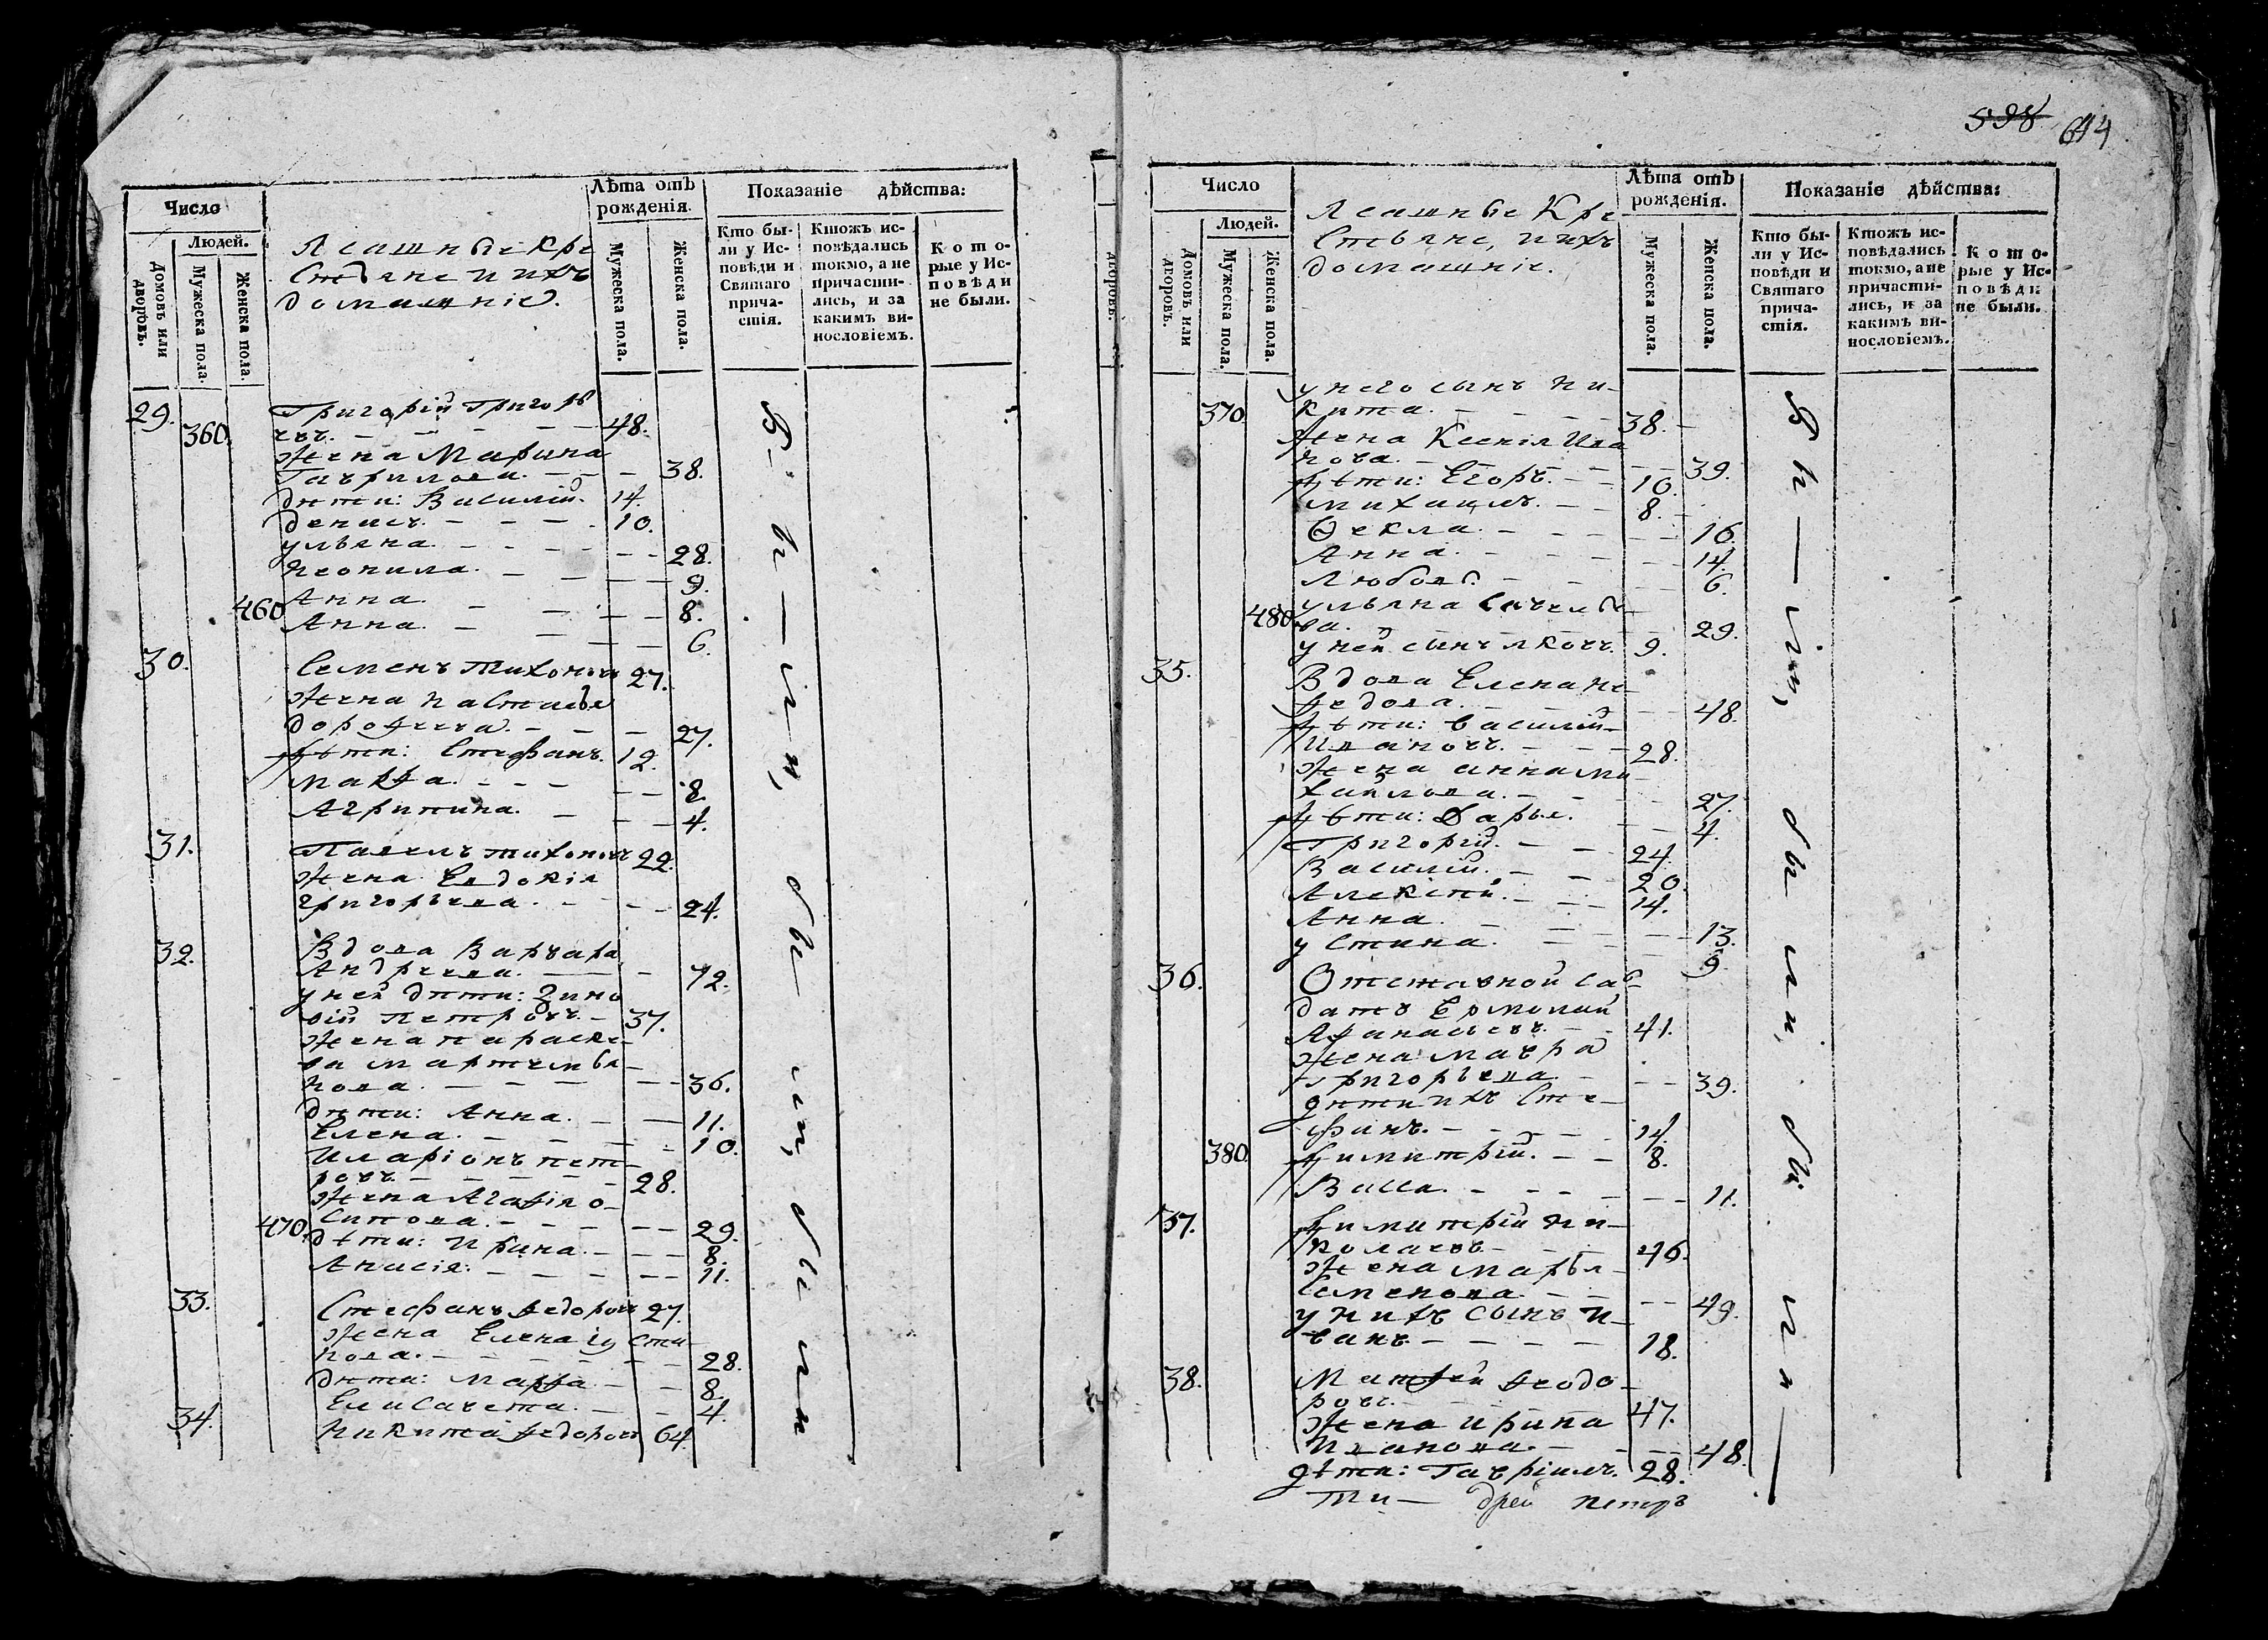 598 644
Число
Людей.
Домовъ или дворовъ.
Мужеска пола.
Женска пола.
Ясашные кре
стьяне и ихъ
домашніе.
Лѣта отъ рожденія.
Мужеска пола.
Женска пола.
Показаніе дѣйства:
Кто бы-
ли у Ис-
повѣди и
Святаго
прича-
стія.
Ктожъ ис-
повѣдались
токмо, а не
причасти-
лись, и за
какимъ ви-
нословіемъ.
К о т о-
рые у Ис-
п о в ѣ д и
не были.
29. Григорій Григорь
360. евъ. 48.
Жена Марина
Гаврилова. 38.
дѣти: Василий. 14.
денисъ. 10.
ульяна. 28.
Неонила. 9.
460 Анна. 8.
Анна. 6.
30. Семенъ тихоновъ 27.
жена настасья
дорофеева. 27.
дѣти: Стефанъ. 12.
марфа. 8.
Агрипина. 4.
31. Павелъ тихоновъ 22.
жена Евдокія
григорьева. 24.
32. Вдова Варвара
Андреева. 72.
у ней дѣти: Зино
вій петровъ. 37.
жена параске-
ва мартемья-
нова. 36.
дѣти: Анна. 11.
Елена. 10.
Иларіонъ пет-
ровъ. 28.
жена Агафія о-
470. сипова. 29.
дѣти: Ирина. 8.
Анисія. 11.
33. Стефанъ федоровъ 27.
жена Елена Іусти
нова. 28.
дѣти: марфа 8.
Елисавета. 4.
34. Никита федоровъ 64.
Были, были, были
дворовъ.
Число
Людей.
Домовъ или дворовъ.
Мужеска пола.
Женска пола.
Ясашные Кре
стьяне, и ихъ
домашніе.
Лѣта отъ рожденія.
Мужеска пола.
Женска пола.
Показаніе дѣйства:
Кто бы-
ли у Ис-
повѣди и
Святаго
прича-
стія.
Ктожъ ис-
повѣдались
токмо, а не
причасти-
лись, и за
какимъ ви-
нословіемъ.
К о т о-
рые у Ис-
п о в ѣ д и
не были.
у него сынъ Ни-
370. кита. 38.
жена Ксенія Ива
нова. 39.
дѣти: Егоръ. 10.
михаилъ. 8.
Ѳекла. 16.
Анна. 14.
Любовь. 6.
ульяна савелье
480. ва. 29.
у ней сынъ яковъ. 9.
35. Вдова Елена не-
федова. 48.
дѣти: василий
Ивановъ. 28.
жена анна ми-
хайлова. 27.
дѣти: Дарья. 4.
Григорій. 24.
Василій. 20.
Алексѣй. 14.
Анна. 13.
устина. 9.
36. Отставной сал-
датъ Ермолай
Афанасьевъ. 41.
жена мавра
григорьева. 39.
дѣти ихъ Сте-
фанъ. 14.
380. димитрій. 8.
Васса. 11.
37. димитрій Ни-
колаевъ. 46.
жена марья
Семенова. 49.
у нихъ сынъ И-
ванъ. 18.
38. Матфей феодо-
ровъ. 47.
жена ирина
Иванова. 48.
дѣти: Гавріилъ. 28.
ти — дрей петръ
Были, были, были